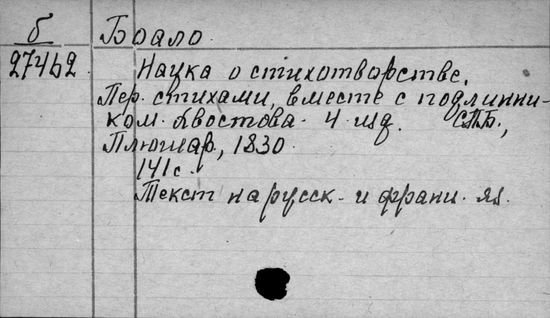 б
27462
Боало
Наука о стихотворстве.
Пер. стихами, вместе с подлинни-
ком. Хвостова. 4 изд. СПБ.,
Плюшар, 1830.
141 с.
Текст на русск. и франц. яз.